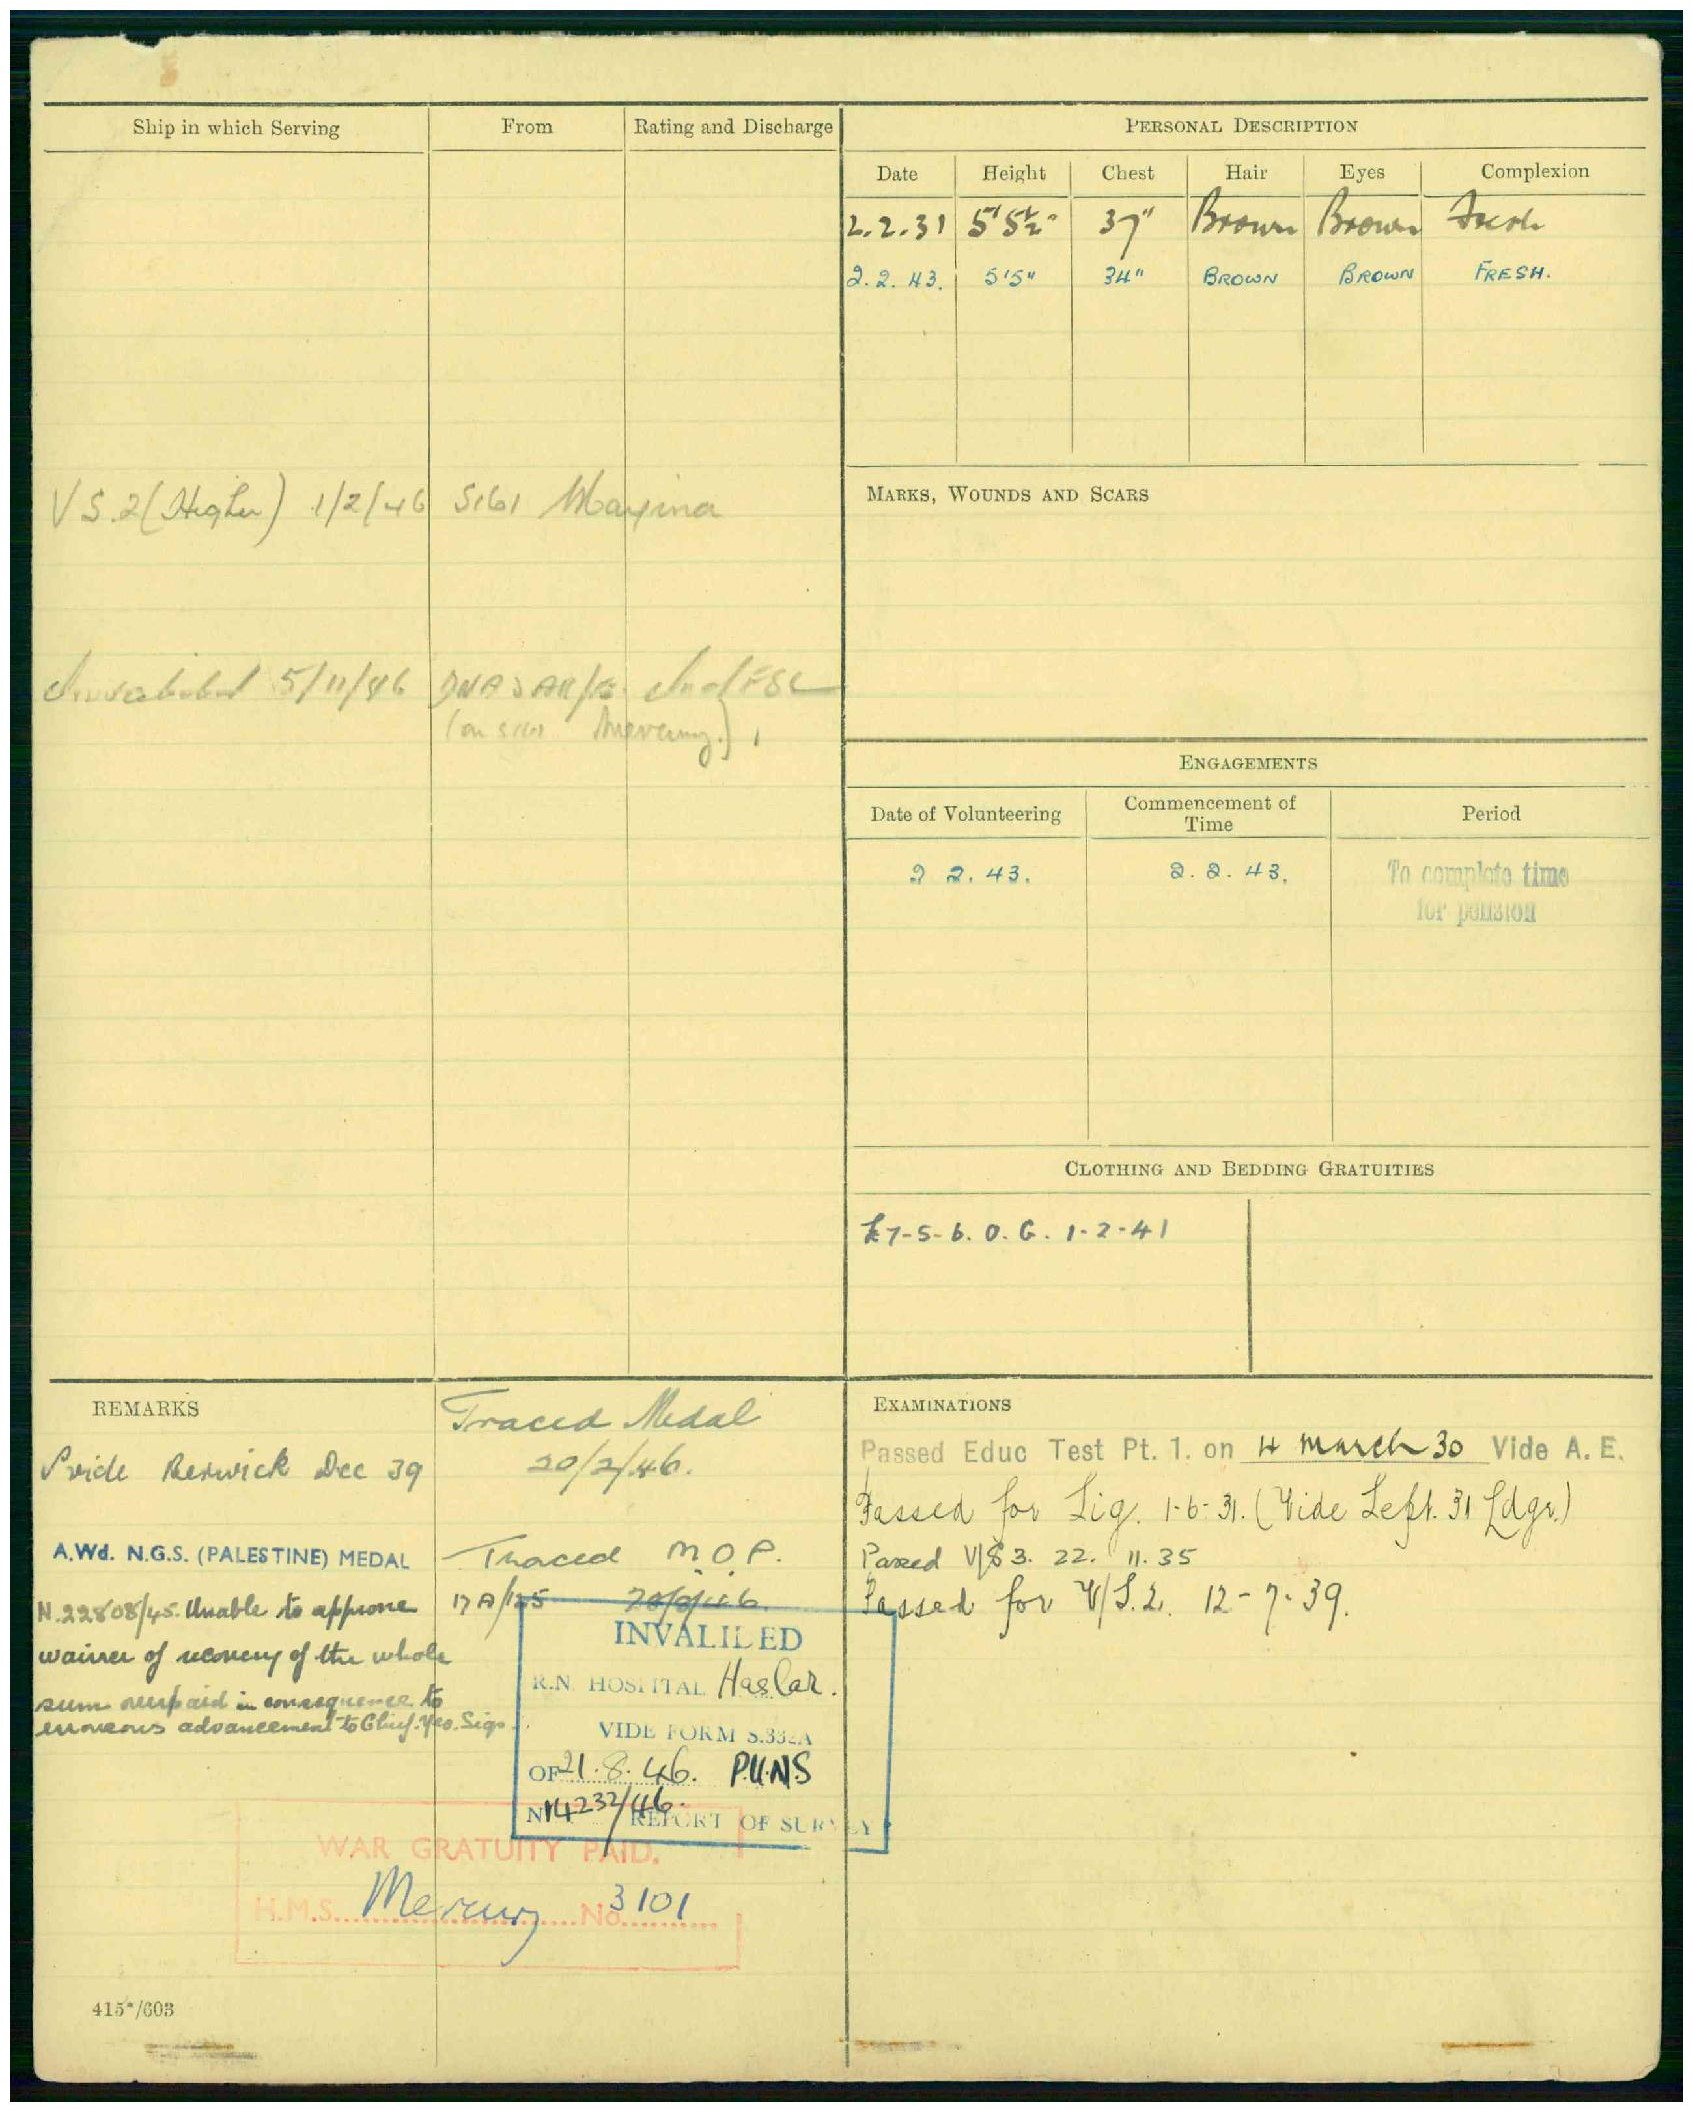 Ship in which Serving
From
Rating and Discharge
PERSONAL DESCRIPTION
Date Height Chest Hair Eyes Complexion
2.2.31 5'5½" 37" Brown Brown Fresh
2.2.43. 5'5" 34" BROWN BROWN FRESH.
VS.2 (Higher) 1/2/46 S161
MARKS, WOUNDS AND SCARS
Invalided 5/11/46
ENGAGEMENTS
Date of Volunteering
Commencement of
Time
Period
2 2.43. 2.2.43. To complete time
for pension
CLOTHING AND BEDDING GRATUITIES
£7-5-6. O.G. 1-2-41
REMARKS
Traced Medal
20/2/46.
Vide Berwick Dec 39
A.Wd. N.G.S. (PALESTINE) MEDAL
Traced M.O.P.
17A/125
N.22808/45. Unable to approve
waiver of recovery of the whole
sum overpaid in consequence to
erroneous advancement to Chief. Yeo. Sigs.
INVALIDED
R.N. HOSPITAL Haslar.
VIDE FORM S.332A
OF 21.8.46. P.U.N.S
No 14232/46. REPORT OF SURVEY
WAR GRATUITY PAID.
H.M.S. Mercury No. 3101
415*/603
EXAMINATIONS
Passed Educ Test Pt. 1. on 4 March 30 Vide A. E.
Passed for Sig. 1-6-31. (Vide Sept. 31 Ldgr.)
Passed V/S 3. 22. 11. 35
Passed for V/S.2. 12-7-39.